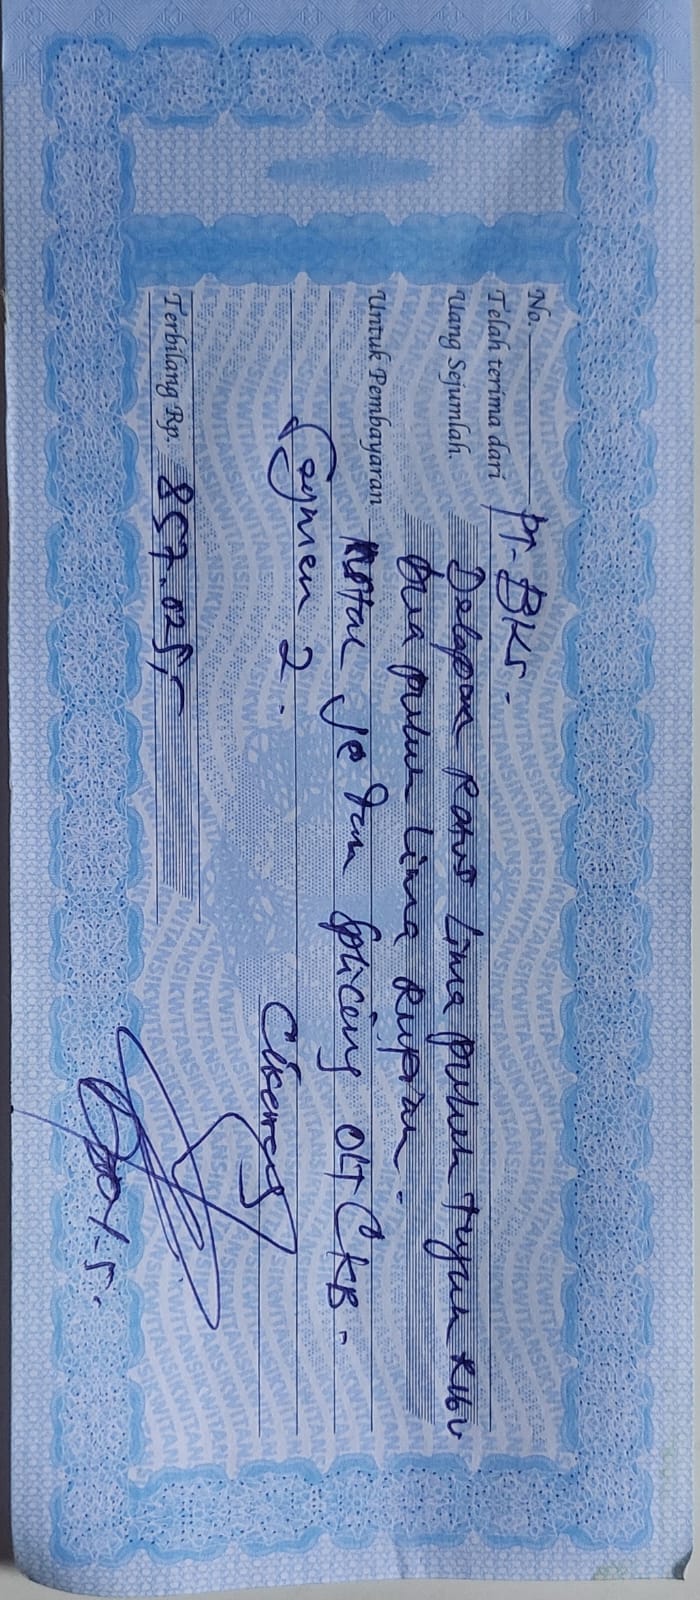 No.
Telah terima dari PT. BKS.
Uang Sejumlah Delapan Ratus Lima puluh tujuh Ribu
Dua puluh Lima Rupiah.
Untuk Pembayaran Instal je dan Splicing OLT CKB.
Segmen 2.
Cikarang
Terbilang Rp. 857.025,-